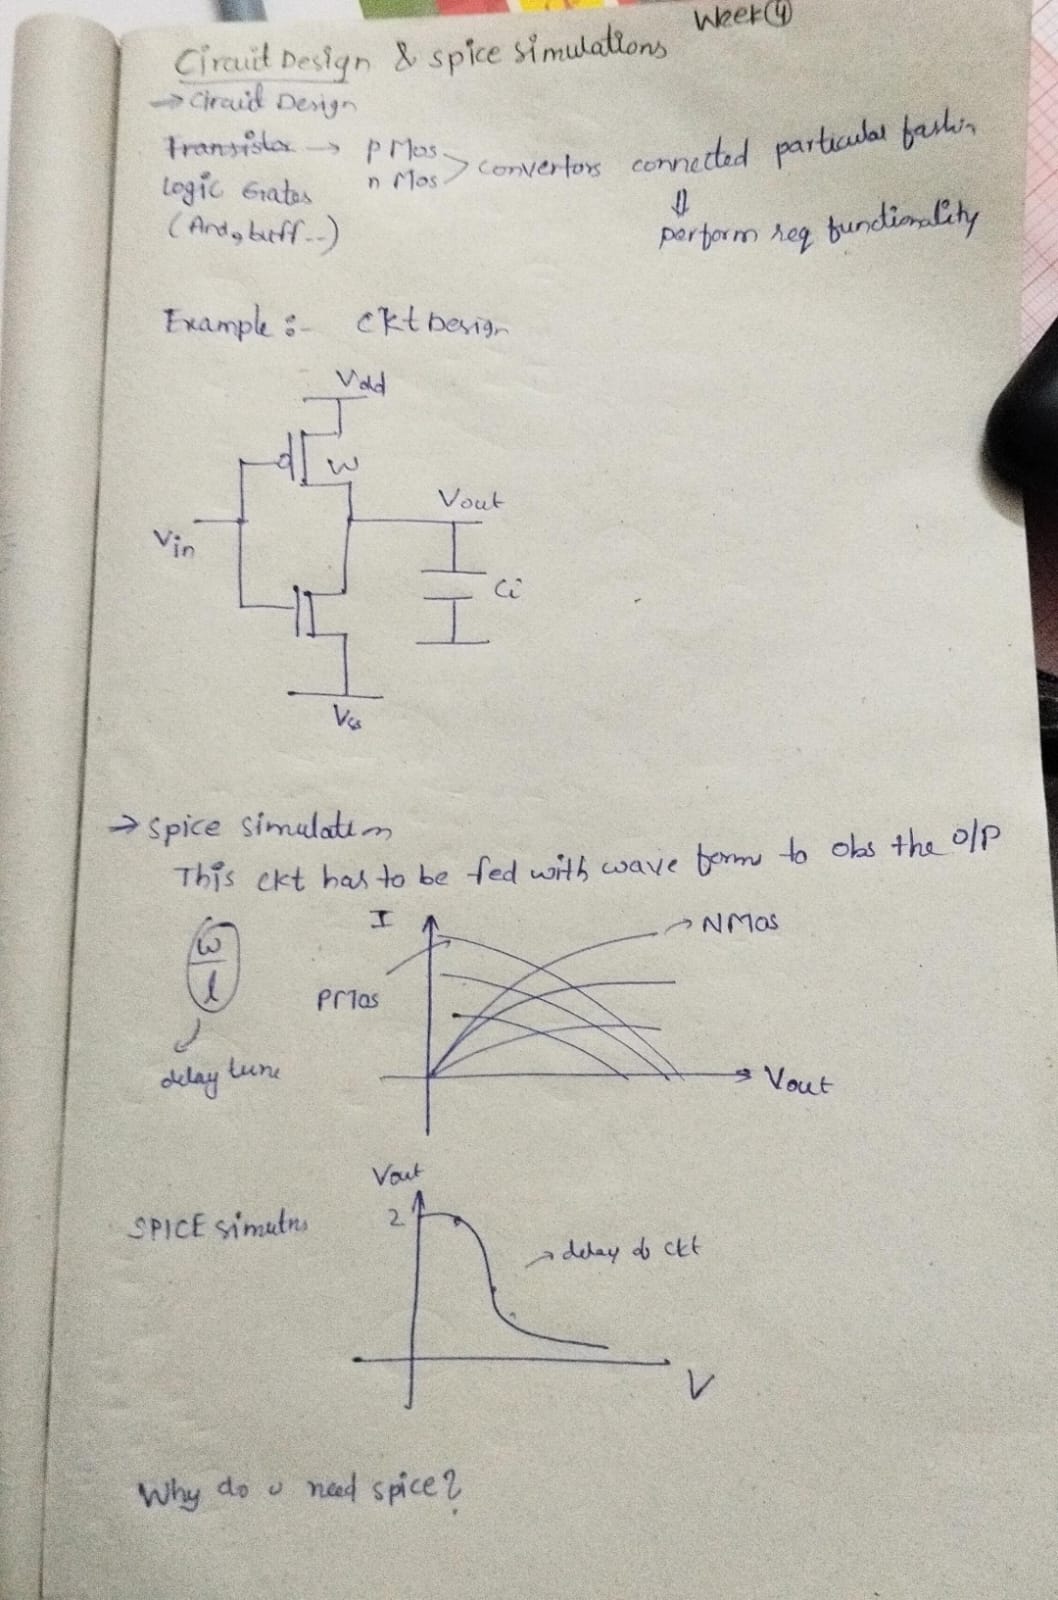 Week ④
Circuit Design & spice simulations
→ Circuit Design
Transistor → pMos nMos > convertors connected particular fashin
Logic Gates
(And, buff..)
⇓
perform req functionality
Example :- ckt Design
Vdd
W
Vout
Vin
Ci
Vss
→ Spice simulation
This ckt has to be fed with wave form to obs the O/P
I
→ NMos
w
l
PMos
delay tune
Vout
Vout
2
SPICE simutns
→ delay of ckt
V
Why do u need spice?